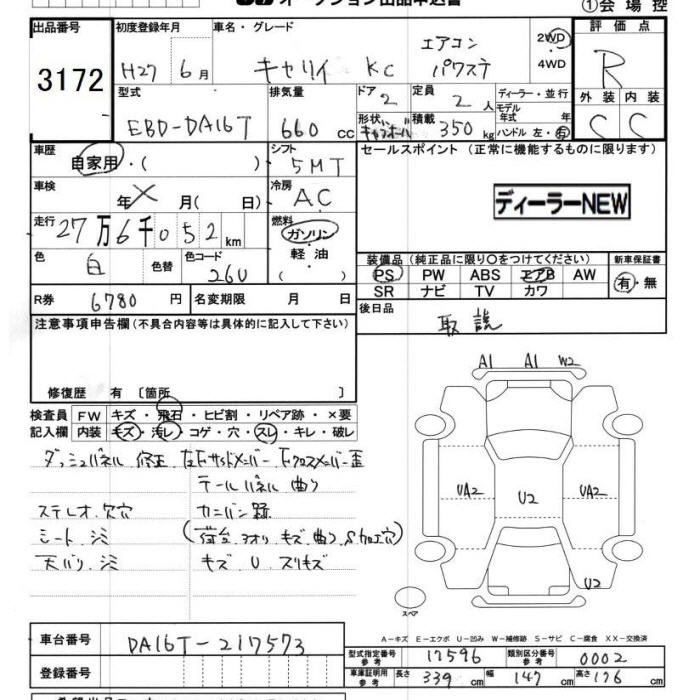 ①会場控
出品番号 初度登録年月 車名・グレード 評価点
3172 H27 6月 キャリイ KC エアコン パワステ 2WD 4WD R
型式 排気量 ドア 2 定員 2人 ディーラー・並行 外装 内装
EBD-DA16T 660cc 形状 積載 350kg モデル年式 年 ハンドル 左・右 C C
車歴 自家用・( ) シフト 5MT セールスポイント (正常に機能するものに限ります)
車検 年 X 月( 日) 冷房 AC ディーラーNEW
走行 27万6千052km 燃料 ガソリン・軽油 ( )
色 白 色替 色コード 26U
装備品(純正品に限り〇をつけてください) 新車保証書
PS PW ABS エアB AW 有・無
SR ナビ TV カワ
R券 6780円 名変期限 月 日
後日品 取説
注意事項申告欄(不具合内容等は具体的に記入して下さい)
修復歴 有 〔箇所 〕
A1 A1 W2
検査員 FW キズ・飛石・ヒビ割・リペア跡・×要
記入欄 内装 キズ・汚レ・コゲ・穴・スレ・キレ・破レ
ダッシュパネル 修正 左Fサイドメンバー Fクロスメンバー歪
テールパネル 曲り
UA2 U2 UA2
ステレオ 欠穴 カニバン跡
シート シミ (荷台 アオリ キズ 曲り 加工穴)
天バリ シミ キズ U スリキズ
U2
スペア
A―キズ E―エクボ U―凹み W―補修跡 S―サビ C―腐食 XX―交換済
車台番号 DA16T-217573
型式指定番号 参考 17596 類別区分番号 参考 0002
登録番号 車庫証明用 参考 長さ 339cm 幅 147cm 高さ 176cm